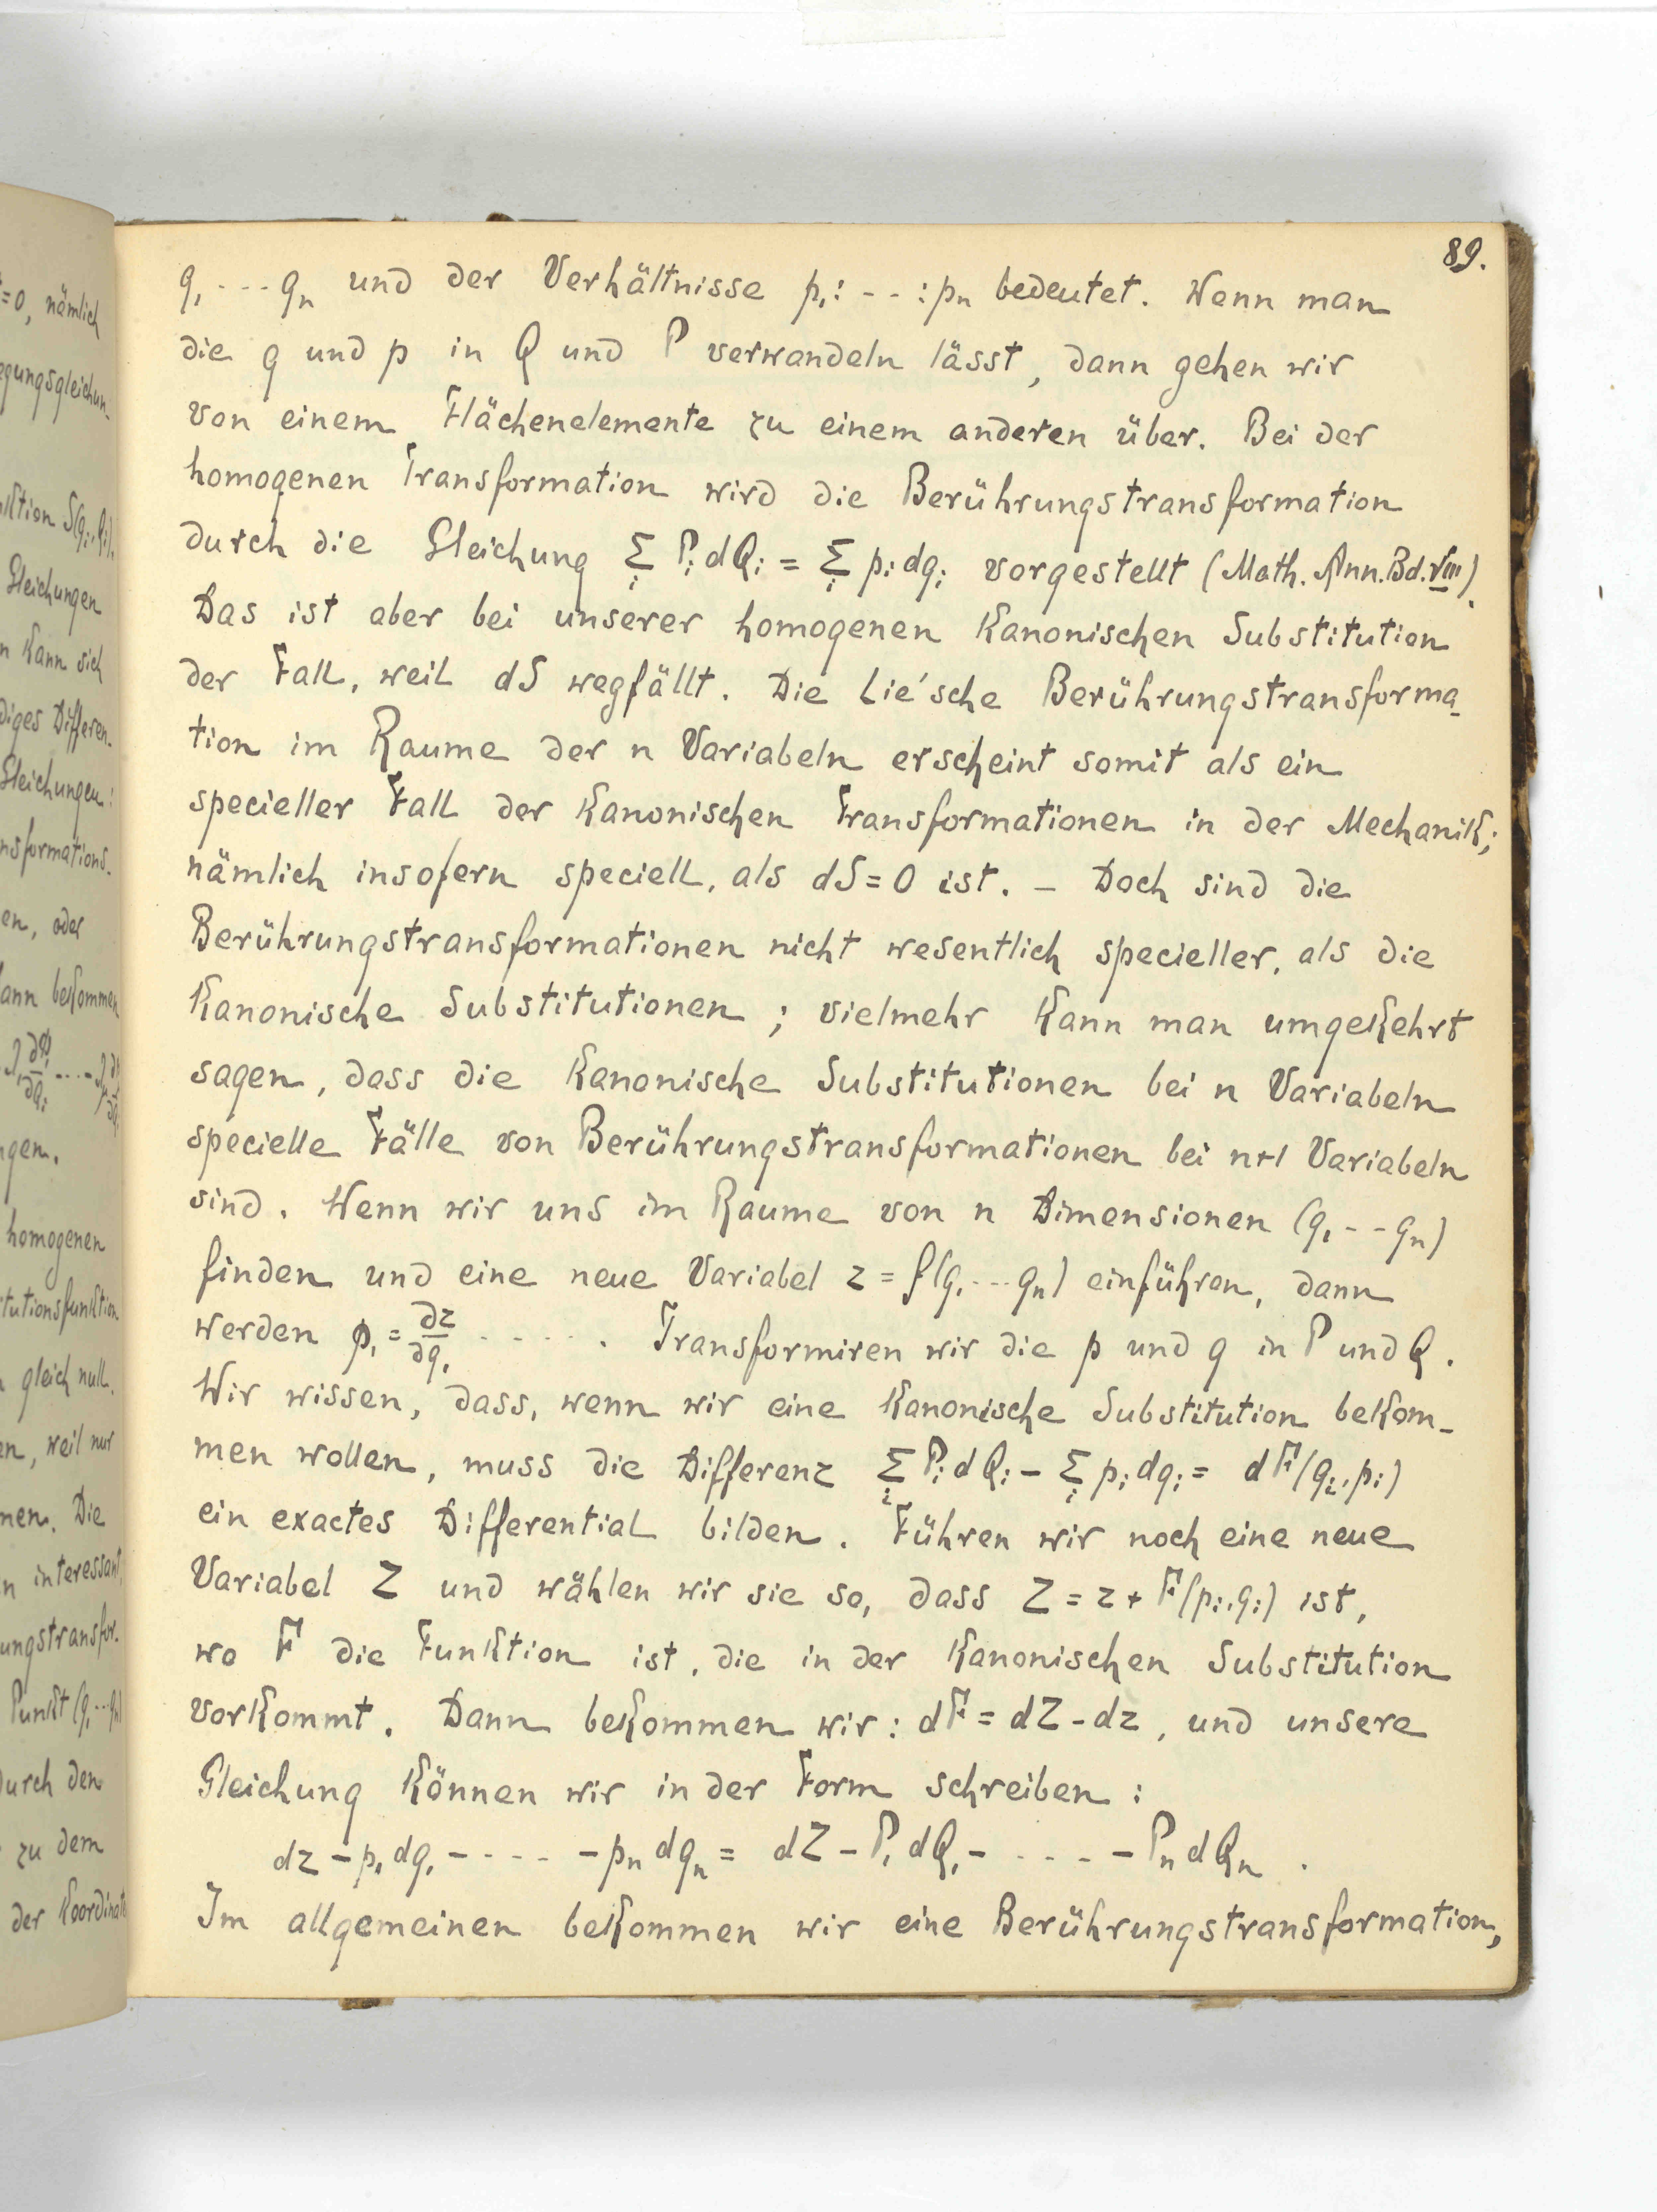 =0, nämlich
gungsgleichun-
ktion S(qi, Qi).
Gleichungen
n kann sich
diges Differen-
Gleichungen:
nsformations-
en, oder
ann bekommen
gen.
homogenen
tutionsfunktion
gleich null.
en, weil nur
nen. Die
n interessant,
ungstransfor-
Punkt (q₁ --- qn)
durch den
zu dem
der Koordinate
89.
q₁ --- qn und der Verhältnisse p₁: -- :pn bedeutet. Wenn man
die q und p in Q und P verwandeln lässt, dann gehen wir
von einem Flächenelemente zu einem anderen über. Bei der
homogenen Transformation wird die Berührungstransformation
durch die Gleichung Σᵢ Pᵢ dQᵢ = Σᵢ pᵢ dqᵢ vorgestellt (Math. Ann. Bd. VIII).
Das ist aber bei unserer homogenen kanonischen Substitution
der Fall, weil dS wegfällt. Die Lie'sche Berührungstransforma-
tion im Raume der n Variabeln erscheint somit als ein
specieller Fall der kanonischen Transformationen in der Mechanik;
nämlich insofern speciell, als dS=0 ist. – Doch sind die
Berührungstransformationen nicht wesentlich specieller, als die
kanonische Substitutionen ; vielmehr kann man umgekehrt
sagen, dass die kanonische Substitutionen bei n Variabeln
specielle Fälle von Berührungstransformationen bei n+1 Variabeln
sind. Wenn wir uns im Raume von n Dimensionen (q₁ -- qn)
finden und eine neue Variabel z = f(q₁ --- qn) einführen, dann
werden p₁ = ∂z/∂q₁ - - - - - . Transformiren wir die p und q in P und Q.
Wir wissen, dass, wenn wir eine kanonische Substitution bekom-
men wollen, muss die Differenz Σᵢ Pᵢ dQᵢ – Σᵢ pᵢ dqᵢ = dF(qᵢ, pᵢ)
ein exactes Differential bilden. Führen wir noch eine neue
Variabel Z und wählen wir sie so, dass Z = z + F(pᵢ, qᵢ) ist,
wo F die Funktion ist, die in der kanonischen Substitution
vorkommt. Dann bekommen wir: dF = dZ – dz, und unsere
Gleichung können wir in der Form schreiben:
dz – p₁ dq₁ – - - - – pn dqn = dZ – P₁ dQ₁ – . - - - – Pn dQn .
Im allgemeinen bekommen wir eine Berührungstransformation,